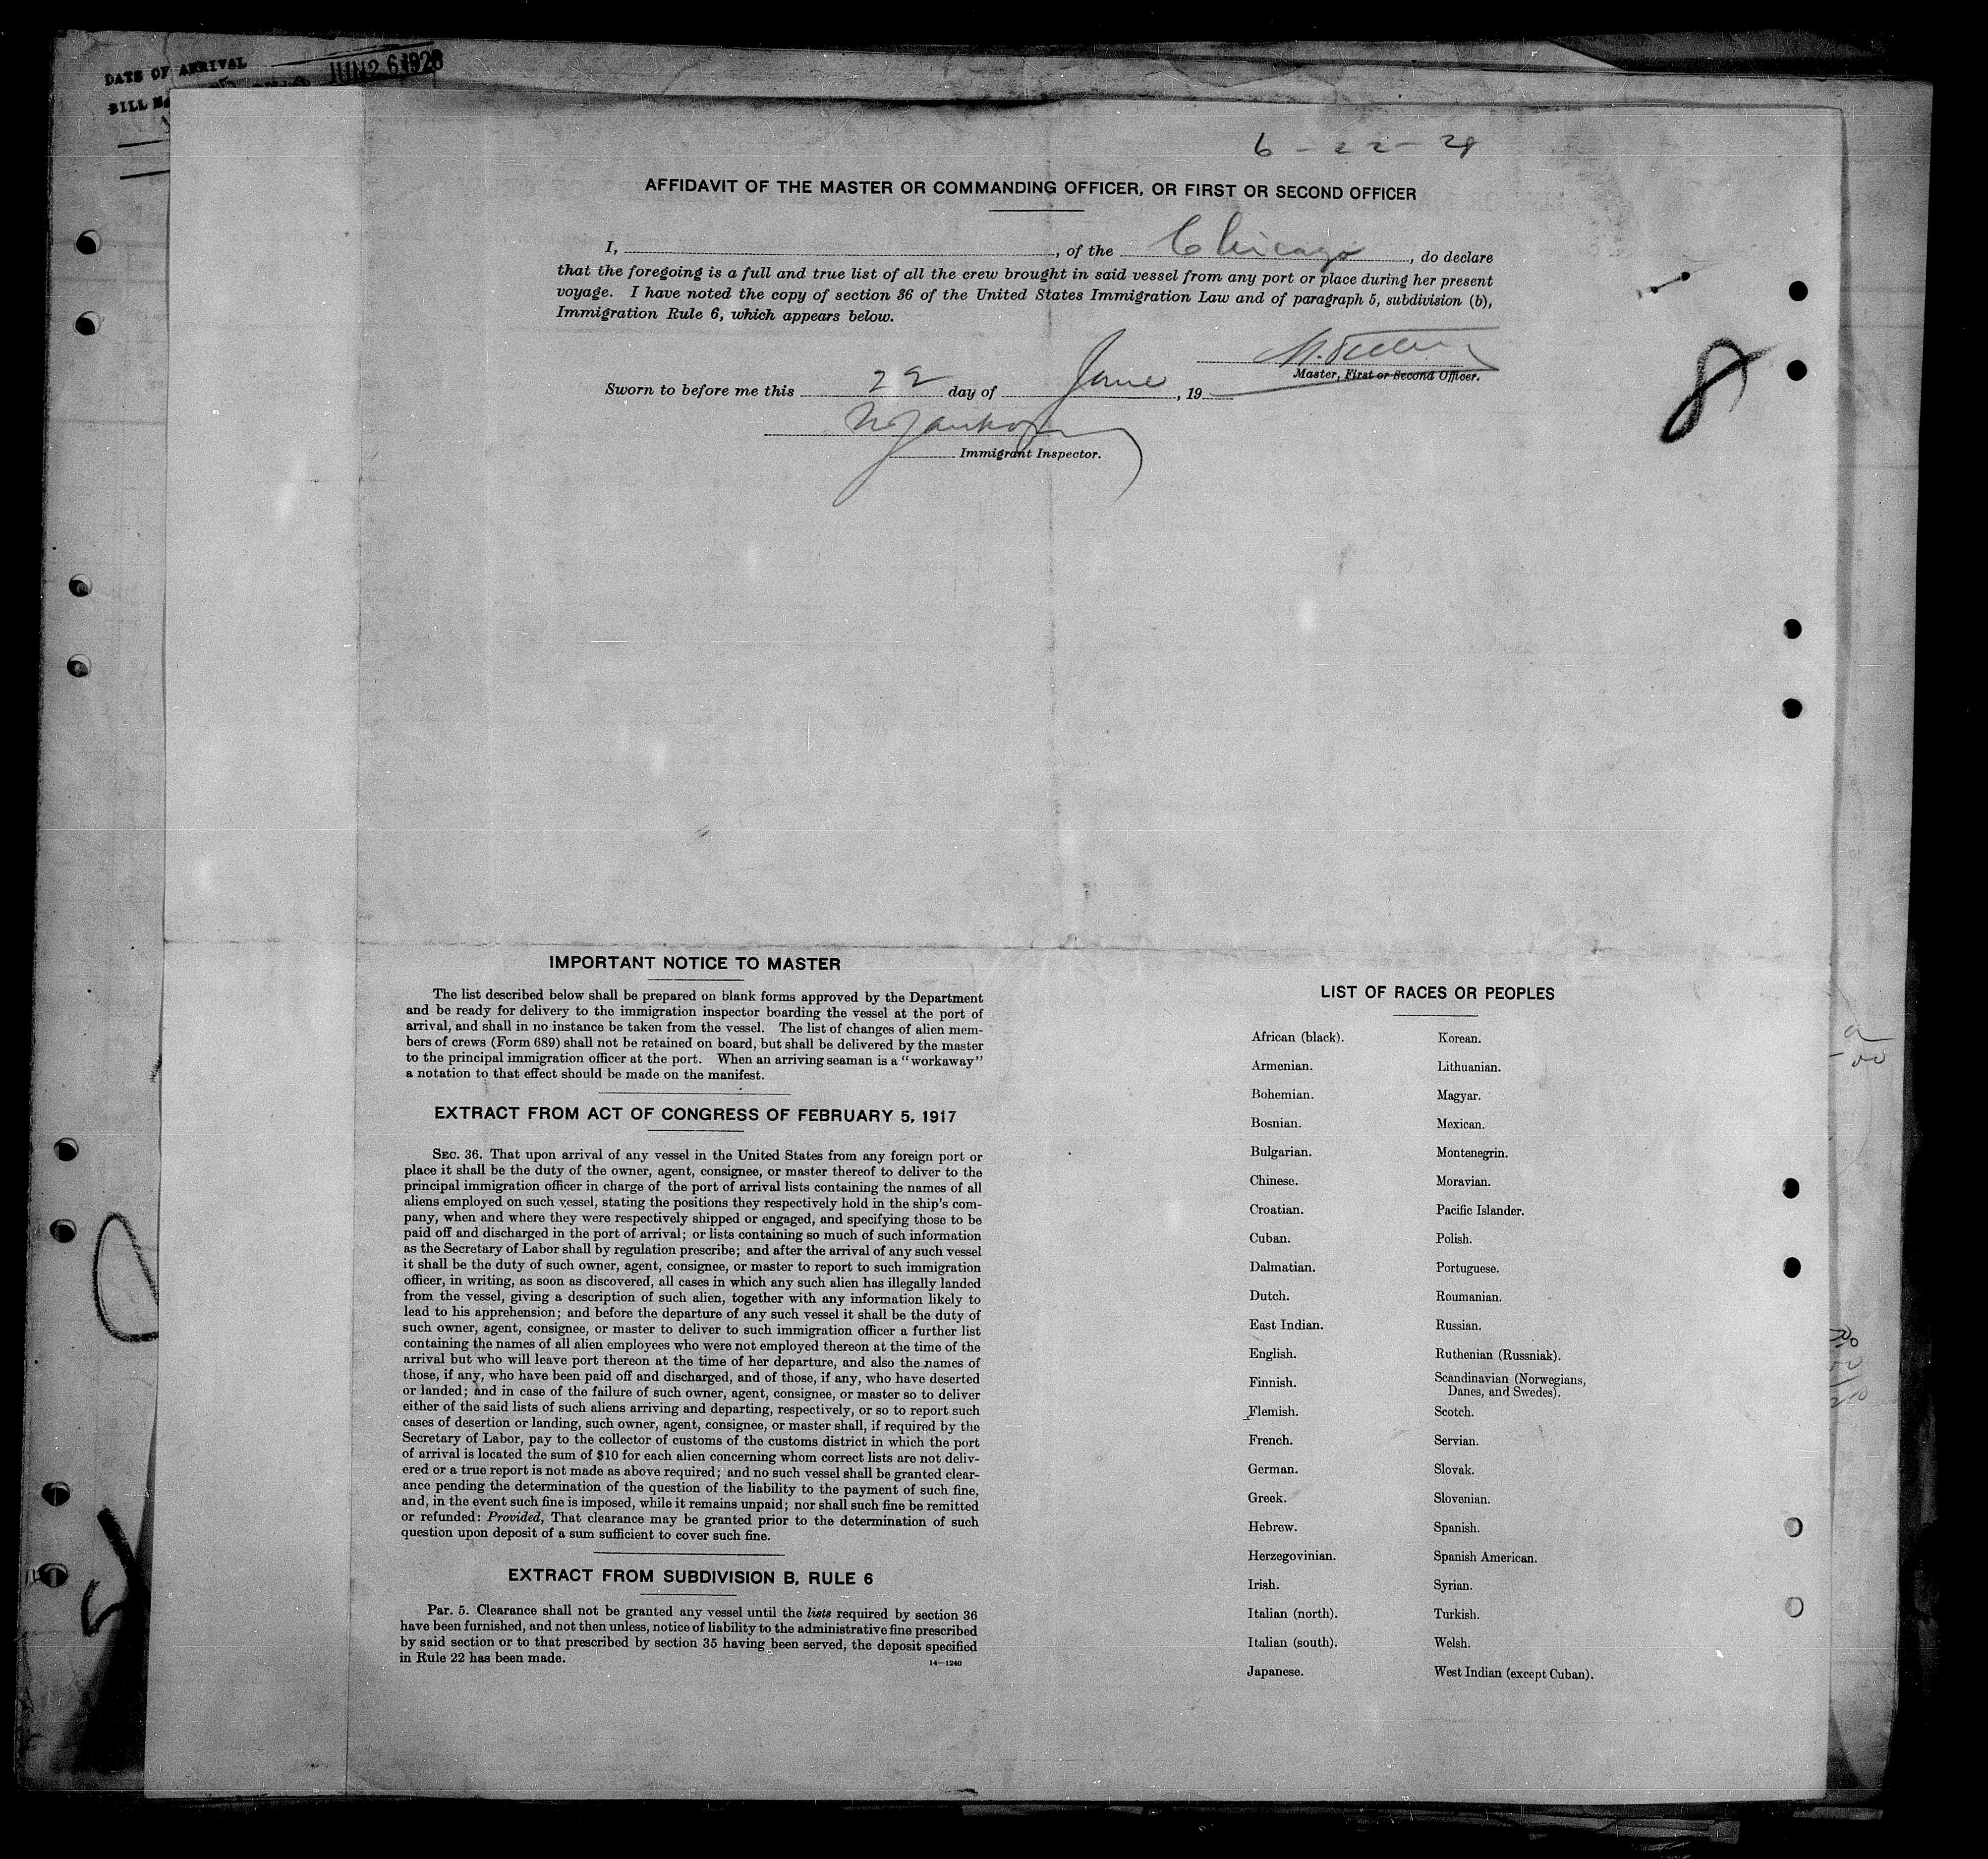 DATE OF ARRIVAL JUN 26 1928
BILL
6 - 22 - 28
AFFIDAVIT OF THE MASTER OR COMMANDING OFFICER, OR FIRST OR SECOND OFFICER
I, , of the Chicago, do declare
that the foregoing is a full and true list of all the crew brought in said vessel from any port or place during her present
voyage. I have noted the copy of section 36 of the United States Immigration Law and of paragraph 5, subdivision (b),
Immigration Rule 6, which appears below.
Master, First or Second Officer.
Sworn to before me this 22 day of June, 19
Immigrant Inspector.
8
IMPORTANT NOTICE TO MASTER
The list described below shall be prepared on blank forms approved by the Department
and be ready for delivery to the immigration inspector boarding the vessel at the port of
arrival, and shall in no instance be taken from the vessel. The list of changes of alien mem-
bers of crews (Form 689) shall not be retained on board, but shall be delivered by the master
to the principal immigration officer at the port. When an arriving seaman is a "workaway"
a notation to that effect should be made on the manifest.
EXTRACT FROM ACT OF CONGRESS OF FEBRUARY 5, 1917
SEC. 36. That upon arrival of any vessel in the United States from any foreign port or
place it shall be the duty of the owner, agent, consignee, or master thereof to deliver to the
principal immigration officer in charge of the port of arrival lists containing the names of all
aliens employed on such vessel, stating the positions they respectively hold in the ship's com-
pany, when and where they were respectively shipped or engaged, and specifying those to be
paid off and discharged in the port of arrival; or lists containing so much of such information
as the Secretary of Labor shall by regulation prescribe; and after the arrival of any such vessel
it shall be the duty of such owner, agent, consignee, or master to report to such immigration
officer, in writing, as soon as discovered, all cases in which any such alien has illegally landed
from the vessel, giving a description of such alien, together with any information likely to
lead to his apprehension; and before the departure of any such vessel it shall be the duty of
such owner, agent, consignee, or master to deliver to such immigration officer a further list
containing the names of all alien employees who were not employed thereon at the time of the
arrival but who will leave port thereon at the time of her departure, and also the names of
those, if any, who have been paid off and discharged, and of those, if any, who have deserted
or landed; and in case of the failure of such owner, agent, consignee, or master so to deliver
either of the said lists of such aliens arriving and departing, respectively, or so to report such
cases of desertion or landing, such owner, agent, consignee, or master shall, if required by the
Secretary of Labor, pay to the collector of customs of the customs district in which the port
of arrival is located the sum of $10 for each alien concerning whom correct lists are not deliv-
ered or a true report is not made as above required; and no such vessel shall be granted clear-
ance pending the determination of the question of the liability to the payment of such fine,
and, in the event such fine is imposed, while it remains unpaid; nor shall such fine be remitted
or refunded: Provided, That clearance may be granted prior to the determination of such
question upon deposit of a sum sufficient to cover such fine.
EXTRACT FROM SUBDIVISION B, RULE 6
Par. 5. Clearance shall not be granted any vessel until the lists required by section 36
have been furnished, and not then unless, notice of liability to the administrative fine prescribed
by said section or to that prescribed by section 35 having been served, the deposit specified
in Rule 22 has been made.
14—1240
LIST OF RACES OR PEOPLES
African (black).
Armenian.
Bohemian.
Bosnian.
Bulgarian.
Chinese.
Croatian.
Cuban.
Dalmatian.
Dutch.
East Indian.
English.
Finnish.
Flemish.
French.
German.
Greek.
Hebrew.
Herzegovinian.
Irish.
Italian (north).
Italian (south).
Japanese.
Korean.
Lithuanian.
Magyar.
Mexican.
Montenegrin.
Moravian.
Pacific Islander.
Polish.
Portuguese.
Roumanian.
Russian.
Ruthenian (Russniak).
Scandinavian (Norwegians,
Danes, and Swedes).
Scotch.
Servian.
Slovak.
Slovenian.
Spanish.
Spanish American.
Syrian.
Turkish.
Welsh.
West Indian (except Cuban).